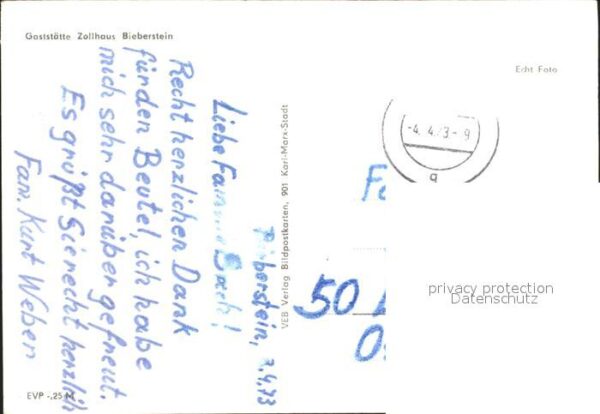 Gaststätte Zollhaus Bieberstein
Echt Foto
-4. 4. 73 - 9
Bieberstein, 3.4.73
Liebe Familie Bach!
Recht herzlichen Dank
für den Beutel, ich habe
mich sehr darüber gefreut.
Es grüßt Sie recht herzlich
Fam. Kurt Weber
VEB Verlag Bildpostkarten, 901 Karl-Marx-Stadt
50
privacy protection
Datenschutz
EVP -,25 M